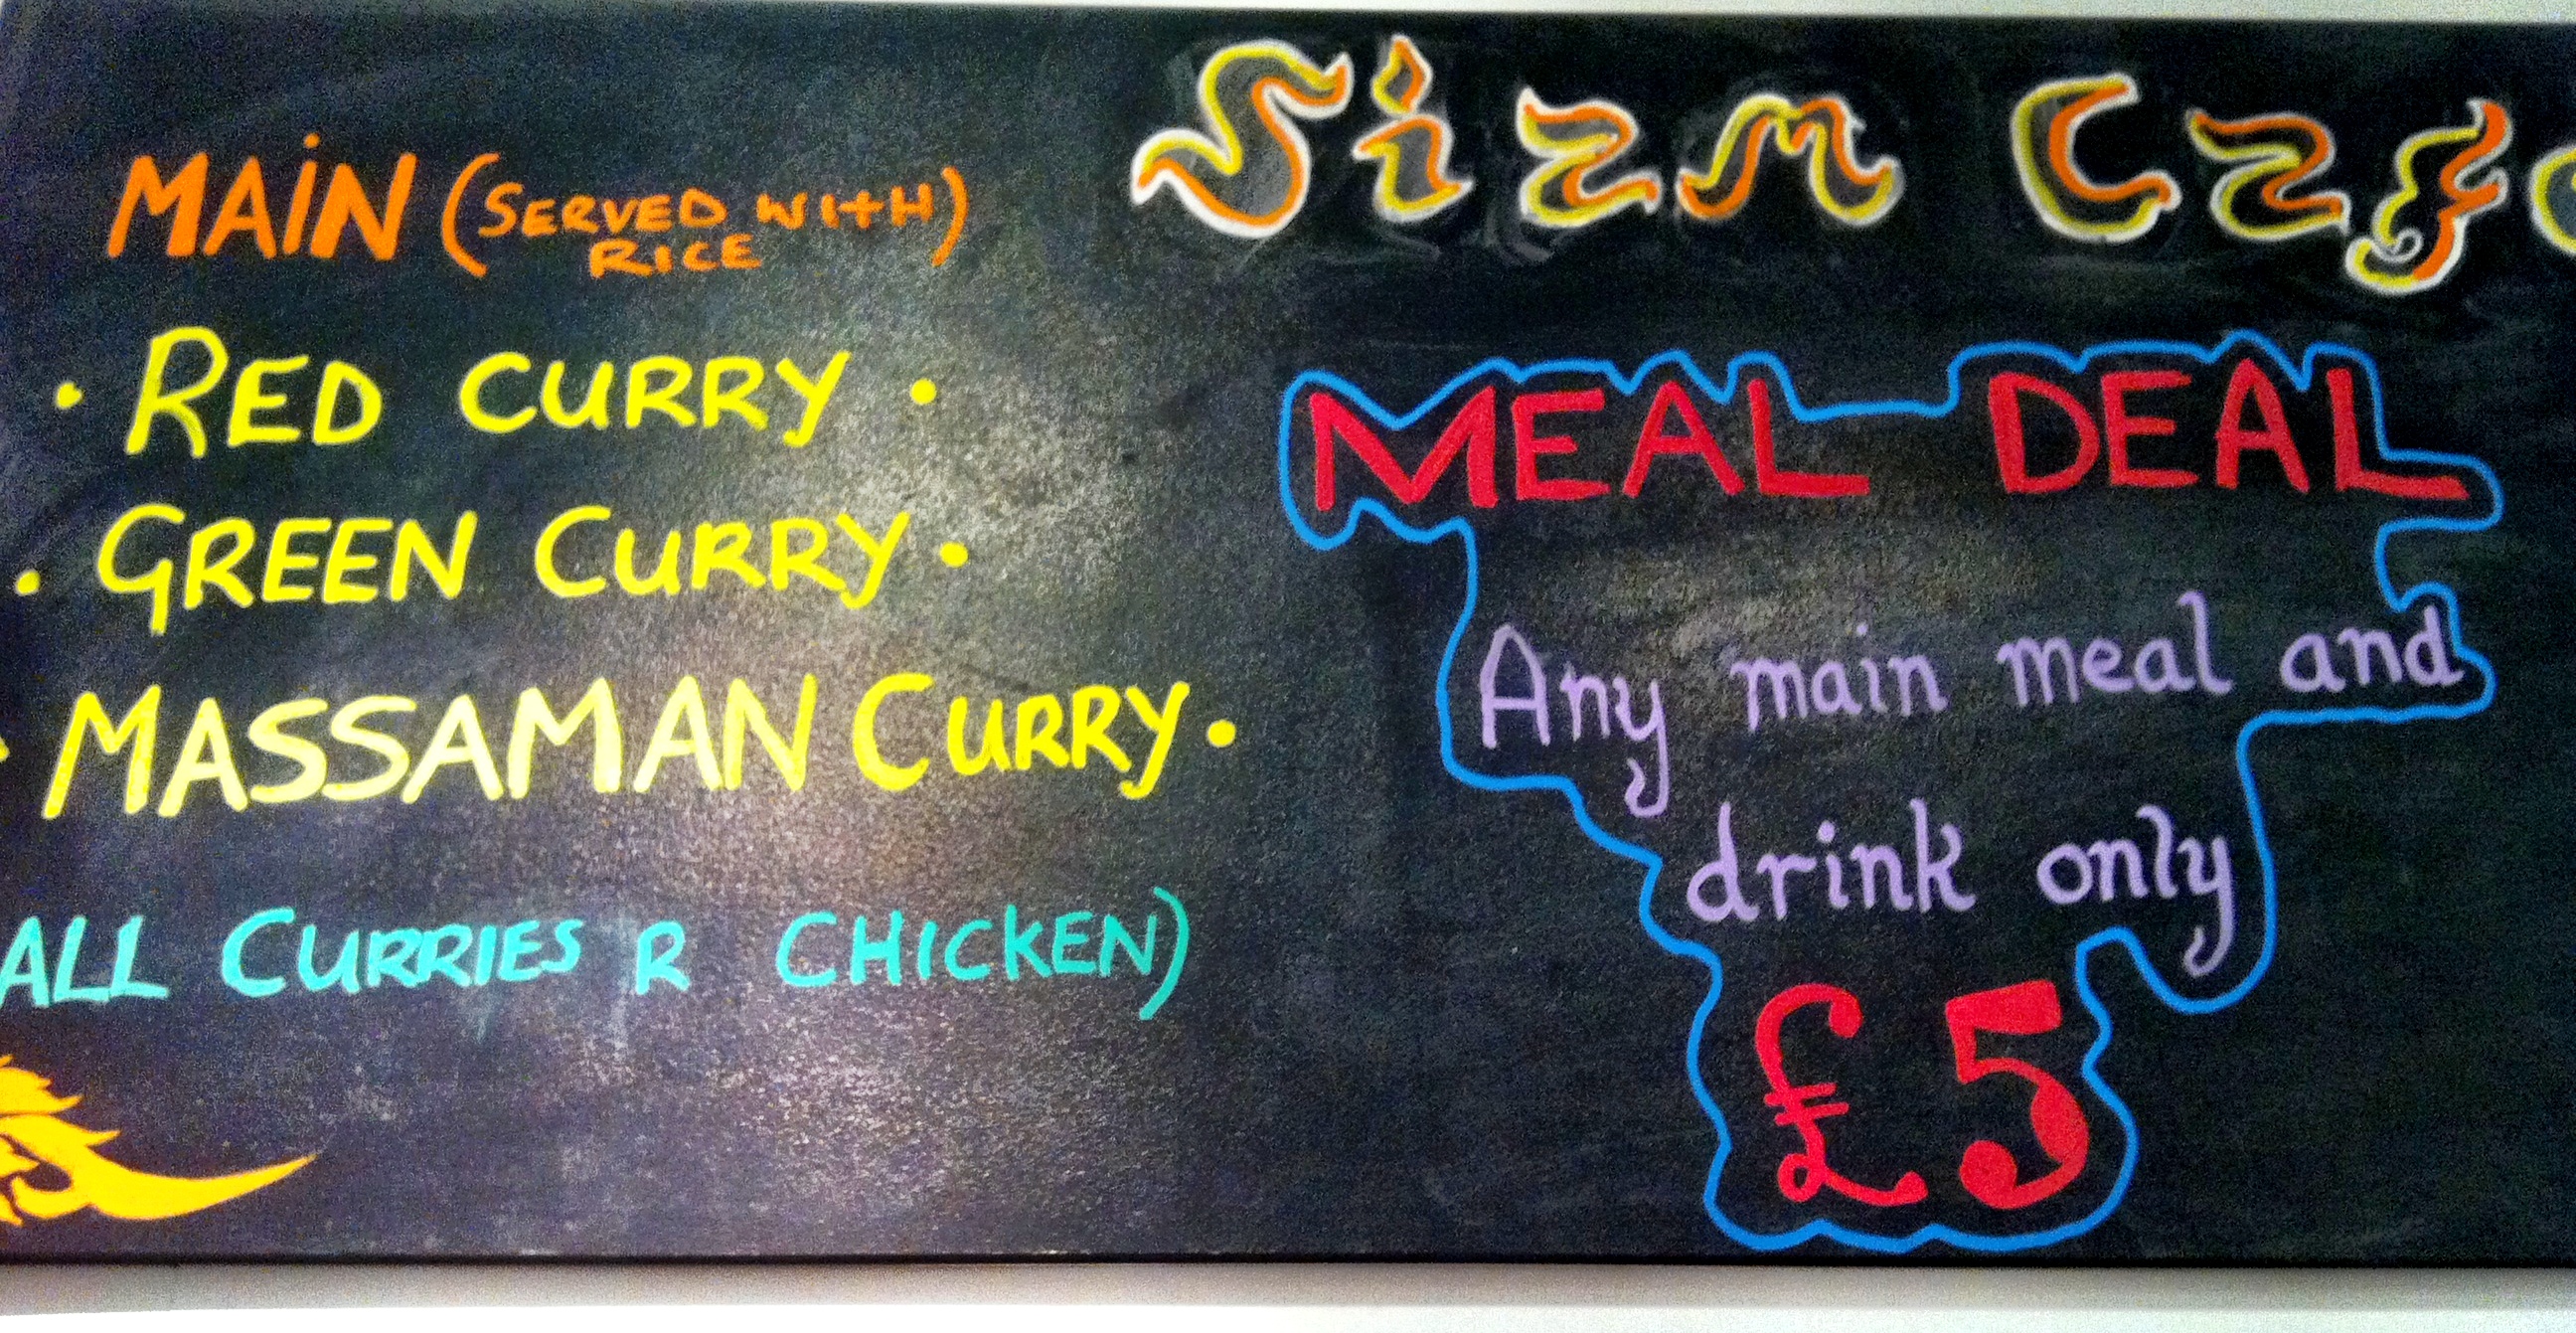 Siam Cafe
MAIN (SERVED WITH)
RICE
• RED CURRY •
• GREEN CURRY •
• MASSAMAN CURRY •
ALL CURRIES R CHICKEN)
MEAL DEAL
Any main meal and
drink only
£5